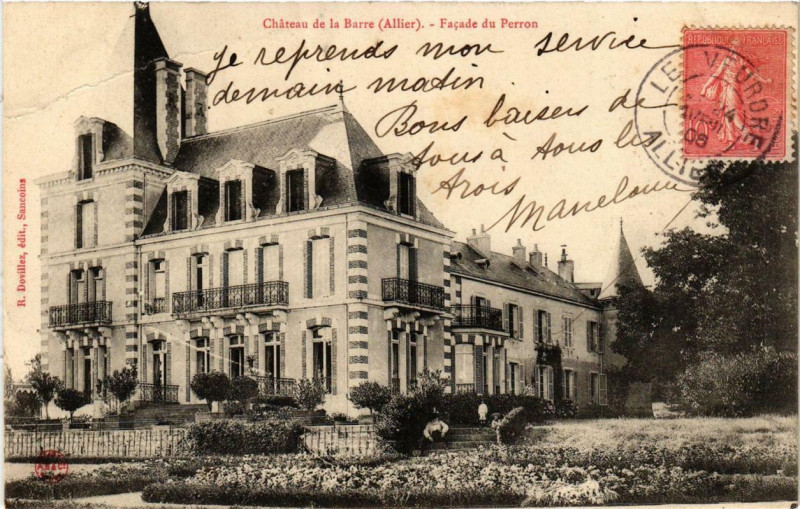 Château de la Barre (Allier). - Façade du Perron
Je reprends mon service
demain matin.
Bons baisers de
tous à tous les
trois
REPUBLIQUE FRANÇAISE
LE VEURDRE
08
ALLIER
R. Dovillez, édit., Sancoins